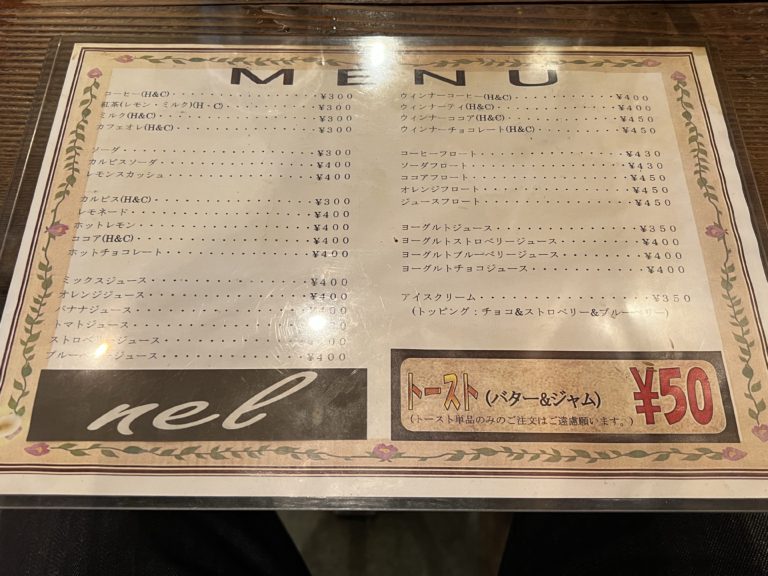 MENU
コーヒー(H&C)・・・・・・・・・・・・・・・¥300
紅茶(レモン・ミルク)(H・C)・・・・・・・・・・¥300
ミルク(H&C)・・・・・・・・・・・・・・・・¥300
カフェオレ(H&C)・・・・・・・・・・・・・・¥300
ソーダ・・・・・・・・・・・・・・・・・・・¥300
カルピスソーダ・・・・・・・・・・・・・・・¥400
レモンスカッシュ・・・・・・・・・・・・・・¥400
カルピス(H&C)・・・・・・・・・・・・・・・¥300
レモネード・・・・・・・・・・・・・・・・・¥400
ホットレモン・・・・・・・・・・・・・・・・¥400
ココア(H&C)・・・・・・・・・・・・・・・・¥400
ホットチョコレート・・・・・・・・・・・・・¥400
ミックスジュース・・・・・・・・・・・・・・¥400
オレンジジュース・・・・・・・・・・・・・・¥400
バナナジュース・・・・・・・・・・・・・・・¥400
トマトジュース・・・・・・・・・・・・・・・
ストロベリージュース・・・・・・・・・・・・¥400
ジュース・・・・・・・・・・・・¥400
nel
ウィンナーコーヒー(H&C)・・・・・・・・・・¥400
ウィンナーティ(H&C)・・・・・・・・・・・・¥400
ウィンナーココア(H&C)・・・・・・・・・・・¥450
ウィンナーチョコレート(H&C)・・・・・・・・¥450
コーヒーフロート・・・・・・・・・・・・・・¥430
ソーダフロート・・・・・・・・・・・・・・・¥430
ココアフロート・・・・・・・・・・・・・・・¥450
オレンジフロート・・・・・・・・・・・・・・¥450
ジュースフロート・・・・・・・・・・・・・・¥450
ヨーグルトジュース・・・・・・・・・・・・・¥350
ヨーグルトストロベリージュース・・・・・・・¥400
ヨーグルトブルーベリージュース・・・・・・・¥400
ヨーグルトチョコジュース・・・・・・・・・・¥400
アイスクリーム・・・・・・・・・・・・・・・¥350
(トッピング：チョコ&ストロベリー&ブルーベリー)
トースト(バター&ジャム) ¥50
(トースト単品のみのご注文はご遠慮願います。)